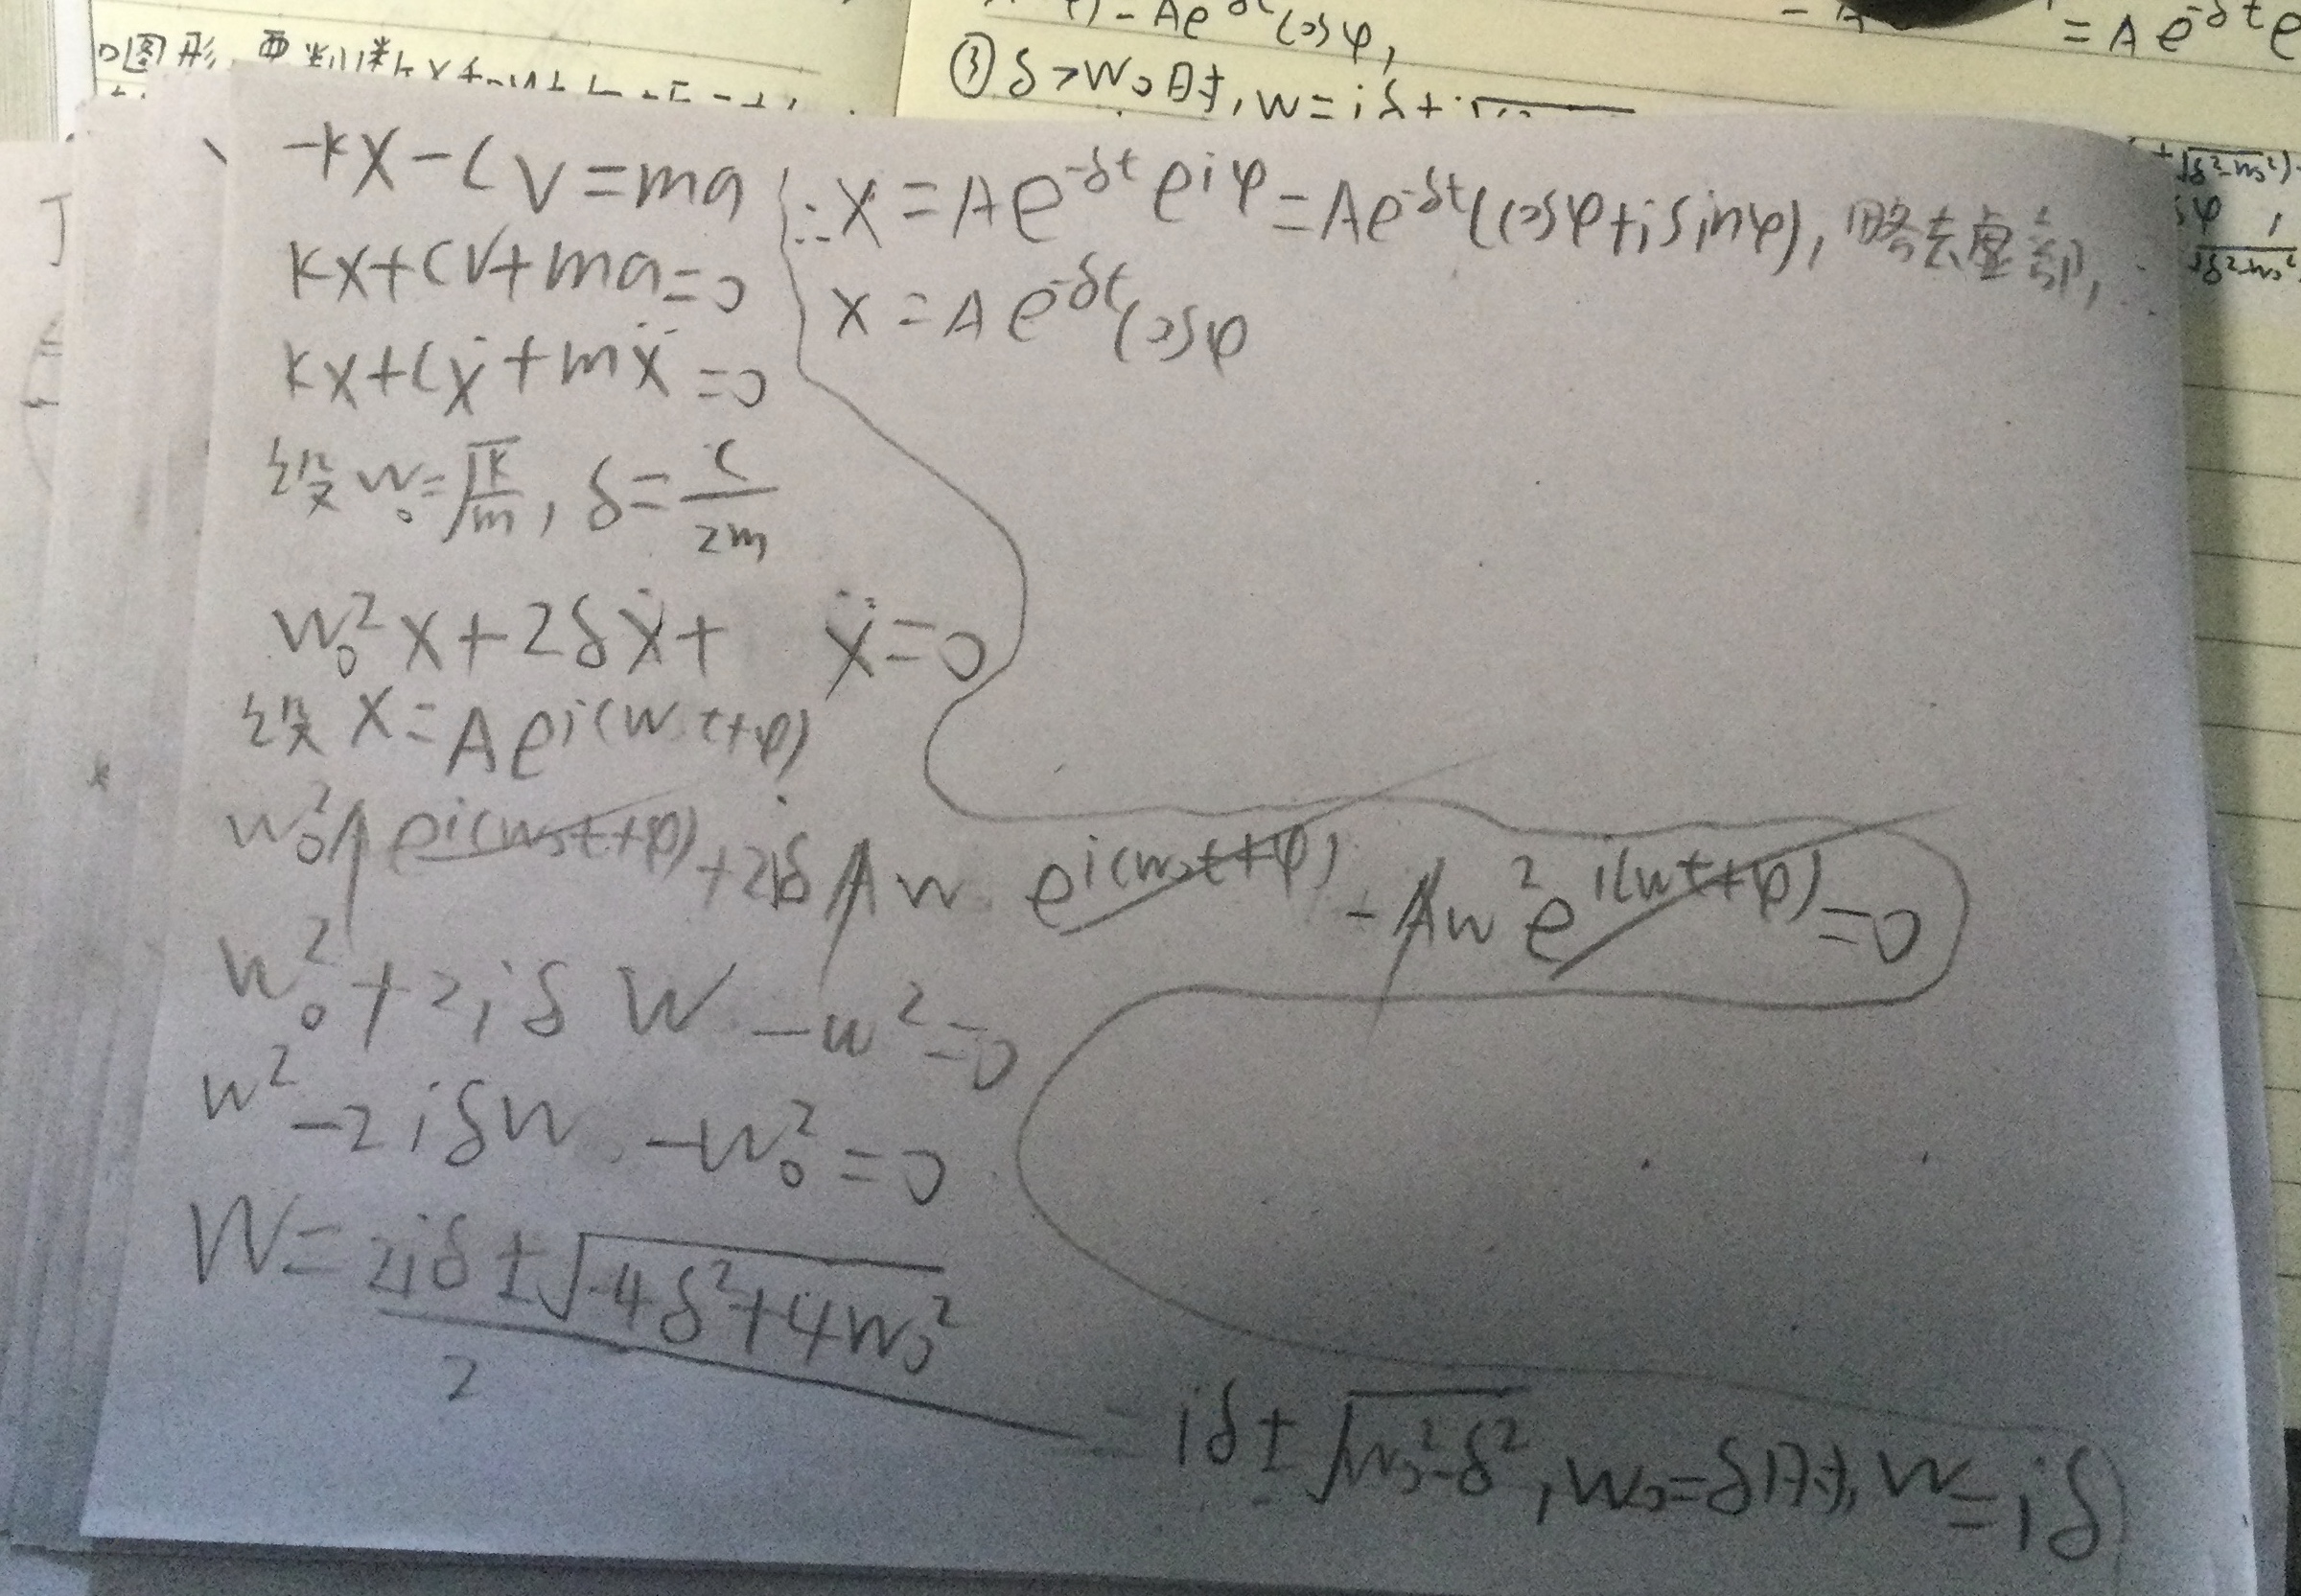 = Ae^{-δt}e
-Ae^{-δt}cosφ,
③δ>w₀时,w=iδ+
-kx-cv=ma
kx+cv+ma=0
kx+cẋ+mẍ=0
设w₀=√(k/m), δ=c/2m
w₀²x+2δẋ+ ẍ=0
设 x=Ae^{i(wt+φ)}
w₀²Ae^{i(w₀t+φ)}+2iδAw e^{i(w₀t+φ)}-Aw²e^{i(wt+φ)}=0
w₀²+2iδw-w²=0
w²-2iδw-w₀²=0
w=(2iδ±√(-4δ²+4w₀²))/2
=iδ±√(w₀²-δ²), w₀=δ时, w=iδ
∴x=Ae^{-δt}e^{iφ}=Ae^{-δt}(cosφ+isinφ), 略去虚部,
x=Ae^{-δt}cosφ